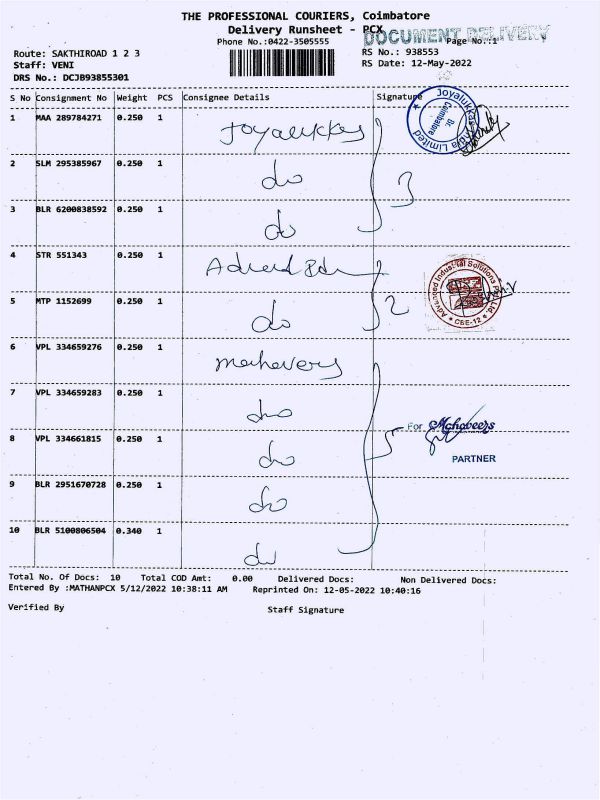 THE PROFESSIONAL COURIERS, Coimbatore
Delivery Runsheet - PCX
DOCUMENT DELIVERY
Phone No.:0422-3505555
Page No.:1
Route: SAKTHIROAD 1 2 3
RS No.: 938553
Staff: VENI
RS Date: 12-May-2022
DRS No.: DCJB93855301
S No Consignment No Weight PCS Consignee Details Signature
1 MAA 289784271 0.250 1 Joyalukkas
Joyalukkas India Limited
Br. Coimbatore
2 SLM 295385967 0.250 1 do
3 BLR 6200838592 0.250 1 do
3
4 STR 551343 0.250 1
Advanced Industrial Solutions
CBE-12
5 MTP 1152699 0.250 1 do
2
6 VPL 334659276 0.250 1
7 VPL 334659283 0.250 1 do
For Mahaveers
8 VPL 334661815 0.250 1 do
5
PARTNER
9 BLR 2951670728 0.250 1 do
10 BLR 5100806504 0.340 1 do
Total No. Of Docs: 10 Total COD Amt: 0.00 Delivered Docs: Non Delivered Docs:
Entered By :MATHANPCX 5/12/2022 10:38:11 AM Reprinted On: 12-05-2022 10:40:16
Verified By Staff Signature